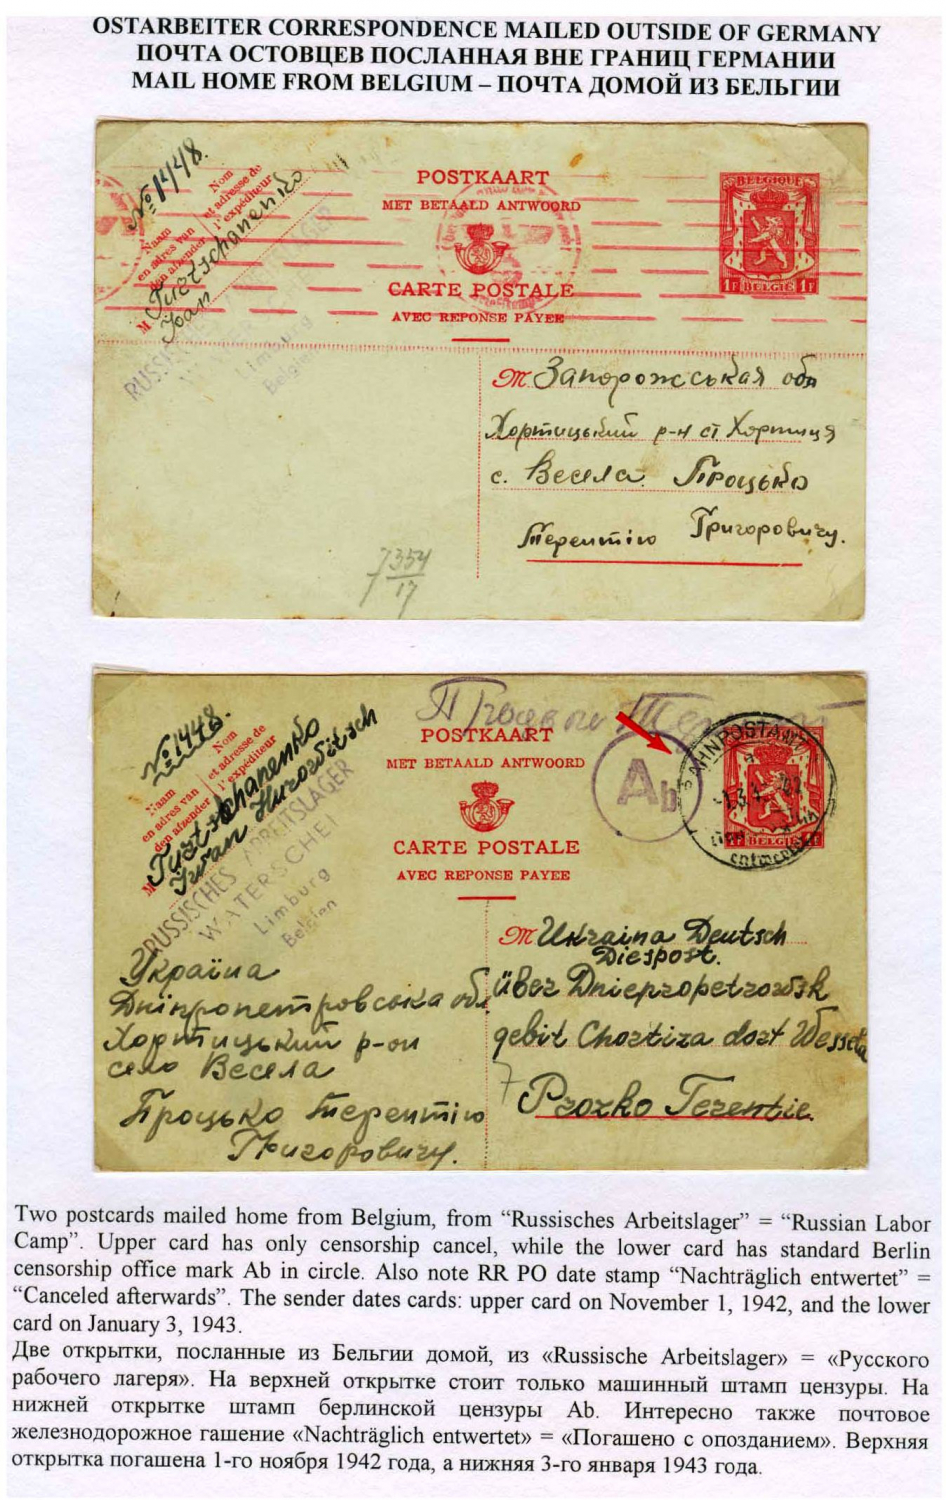 OSTARBEITER CORRESPONDENCE MAILED OUTSIDE OF GERMANY
ПОЧТА ОСТОВЦЕВ ПОСЛАННАЯ ВНЕ ГРАНИЦ ГЕРМАНИИ
MAIL HOME FROM BELGIUM – ПОЧТА ДОМОЙ ИЗ БЕЛЬГИИ
№ 1448.
Nom
et adresse de
l'expéditeur
Naam
en adres van
den afzender
M
Tuztschanenko
Joan
RUSSISCHES
Limburg
Belgien
POSTKAART
MET BETAALD ANTWOORD
CARTE POSTALE
AVEC REPONSE PAYEE
BELGIQUE
1F BELGIË 1F
M Запорожськая обл
Хортицький р-н ст. Хортиця
с. Весела Процько
Терентію Григоровичу.
7354
17
№ 1448.
Nom
et adresse de
l'expéditeur
Naam
en adres van
den afzender
M
Tuztschanenko
Iwan
RUSSISCHES ARBEITSLAGER
WATERSCHEI
Limburg
Belgien
POSTKAART
MET BETAALD ANTWOORD
CARTE POSTALE
AVEC REPONSE PAYEE
Ab
BAHNPOSTAMT
entwertet
BELGIË
M Ukraina Deutsch
Diespost.
über Dniepropetrowsk
gebit Chortiza dorf Wessela
7 Prozko Terentie
Україна
Дніпропетровська обл
Хортицький р-он
село Весела
Процько Терентію
Григоровичу.
Two postcards mailed home from Belgium, from “Russisches Arbeitslager” = “Russian Labor
Camp”. Upper card has only censorship cancel, while the lower card has standard Berlin
censorship office mark Ab in circle. Also note RR PO date stamp “Nachträglich entwertet” =
“Canceled afterwards”. The sender dates cards: upper card on November 1, 1942, and the lower
card on January 3, 1943.
Две открытки, посланные из Бельгии домой, из «Russische Arbeitslager» = «Русского
рабочего лагеря». На верхней открытке стоит только машинный штамп цензуры. На
нижней открытке штамп берлинской цензуры Ab. Интересно также почтовое
железнодорожное гашение «Nachträglich entwertet» = «Погашено с опозданием». Верхняя
открытка погашена 1-го ноября 1942 года, а нижняя 3-го января 1943 года.